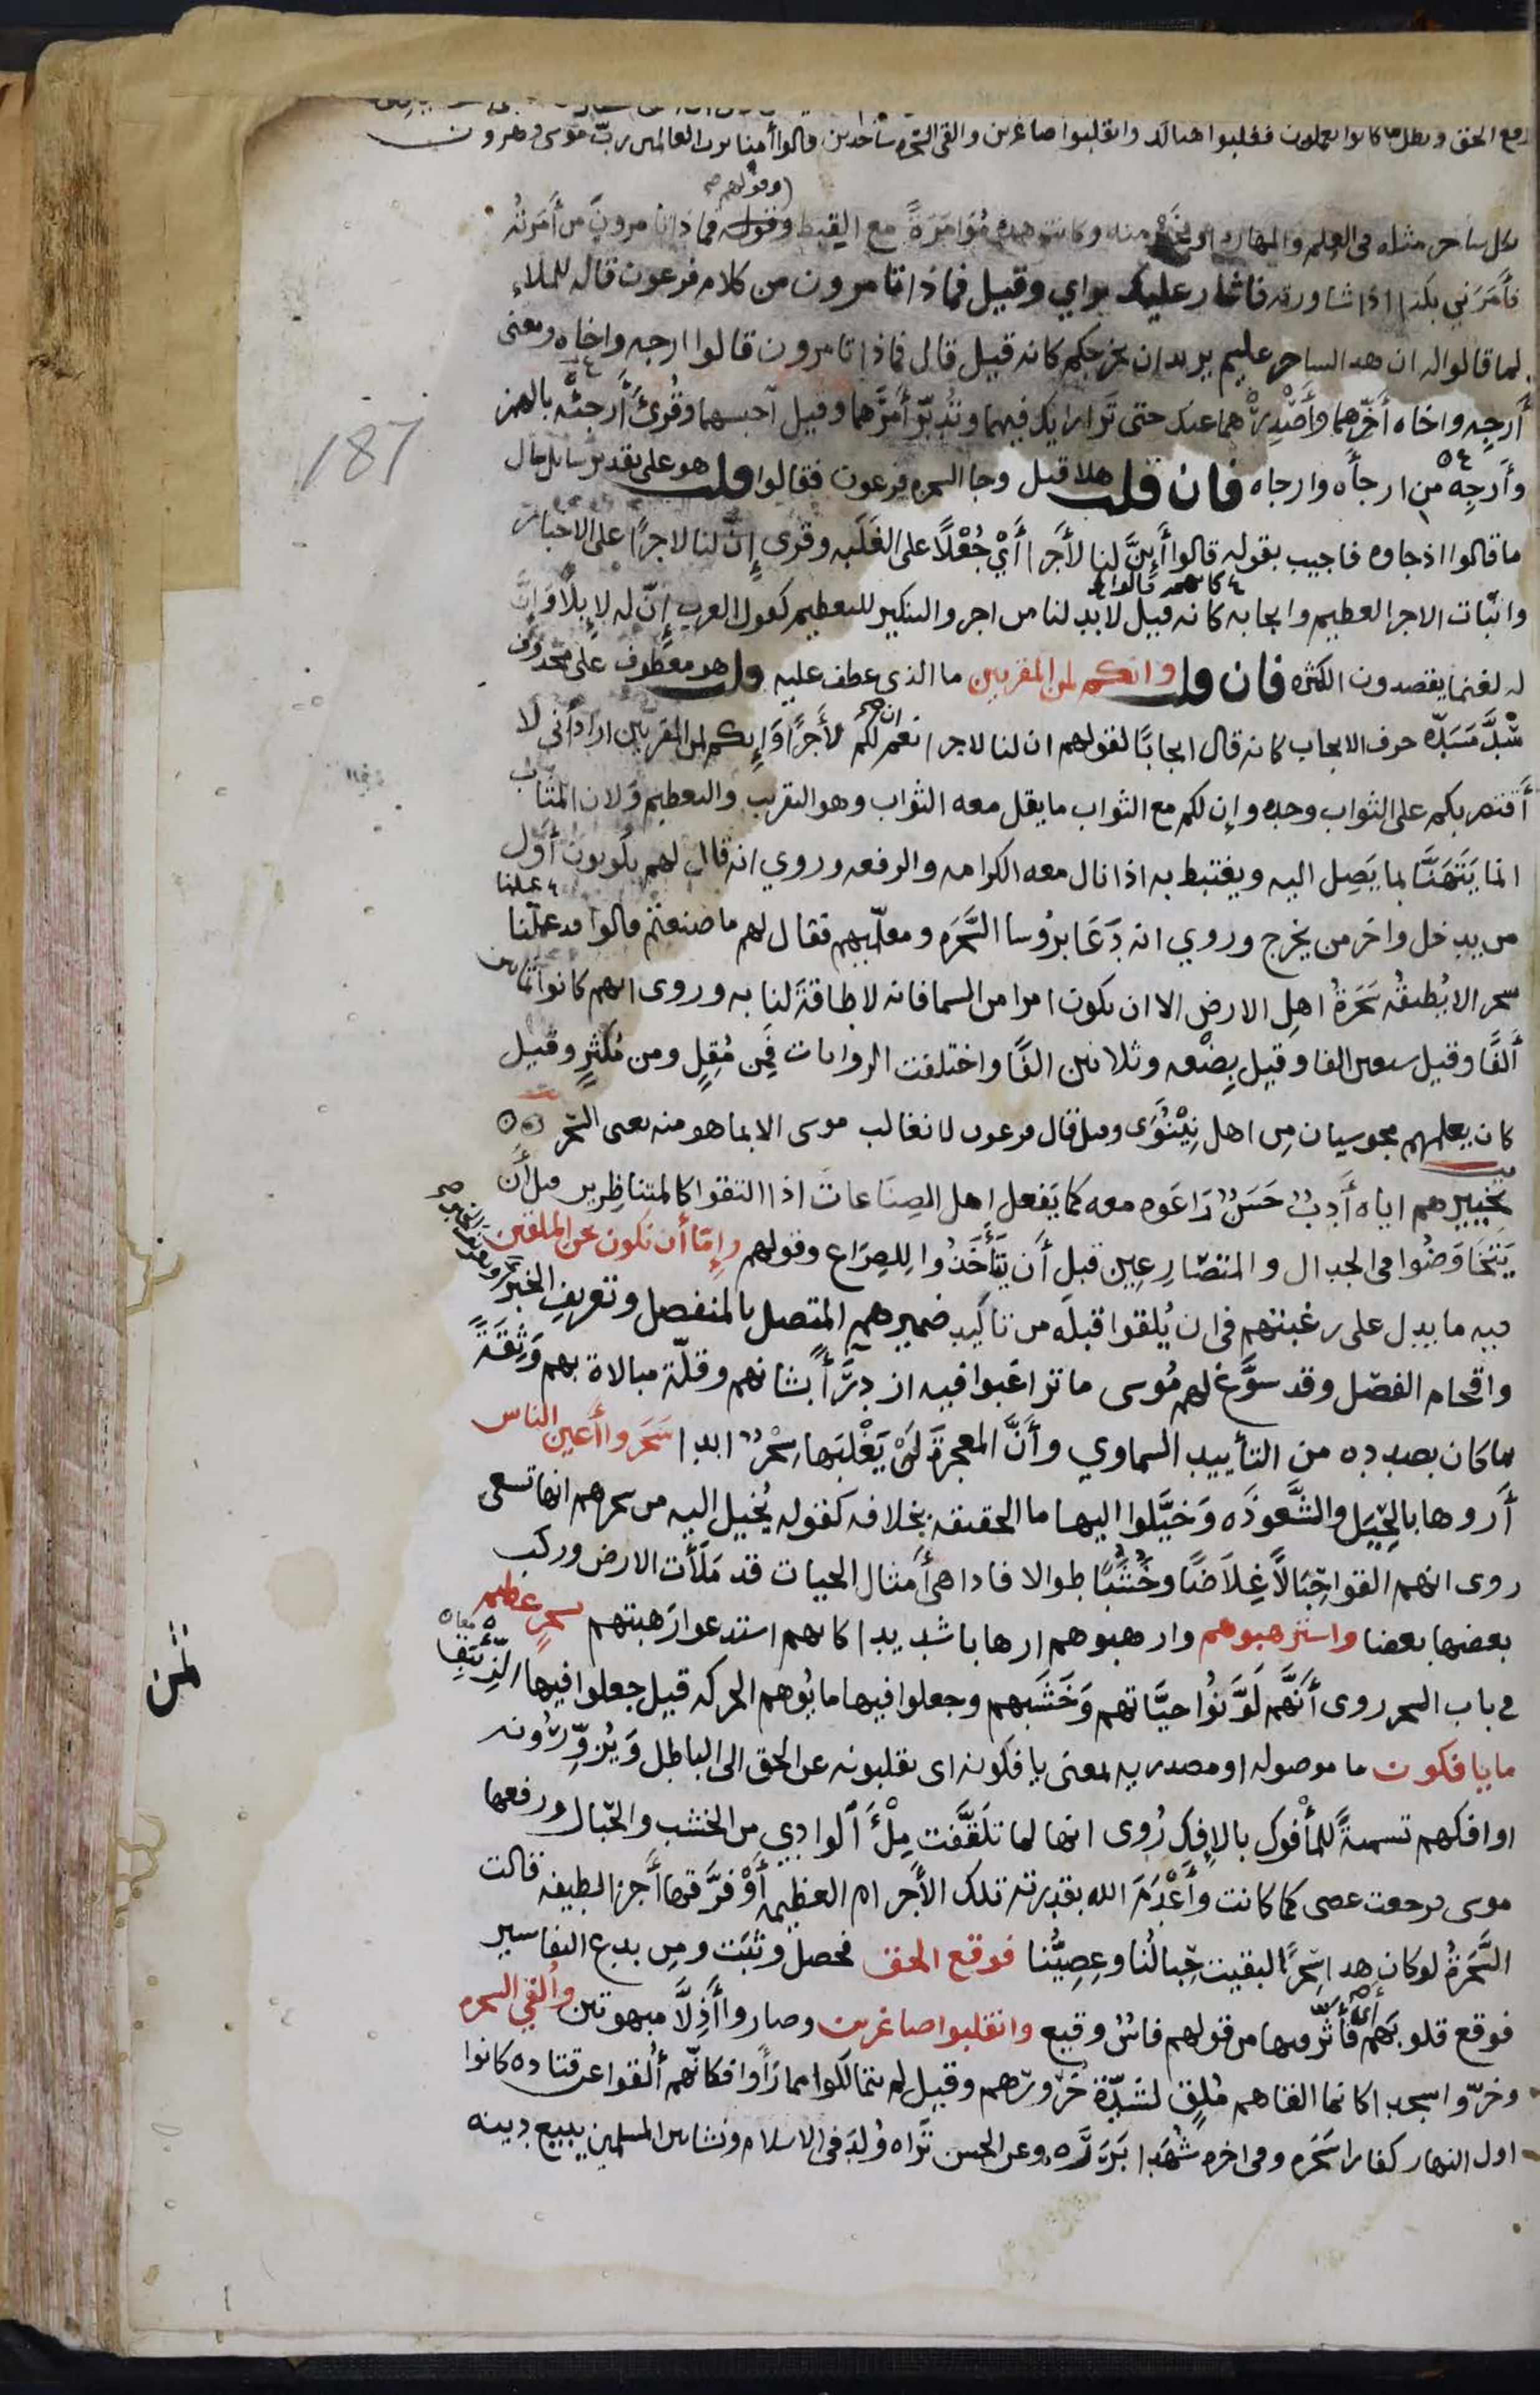 فوقع الحق وبطل ما كانوا يعملون فغلبوا هنالك وانقلبوا صاغرين والقى السحره ساجدين قالوا آمنا برب العالمين رب موسى وهرون
وقولهم صح
بكل ساحر مثله فى العلم والمهاره او بخير منه وكانت هذه مُؤامَرَةً مع القبط وقوله فماذا تامرون من أمَرتُه
فأمَرَني بكذا اذا شاورته فاشار عليك براي وقيل فماذا تامرون من كلام فرعون قاله للملاء
لما قالوا له ان هذا لساحر عليم يريد ان يخرجكم كانه قيل قال فماذا تامرون قالوا ارجه واخاه ومعنى
أرجِه واخاه أخّرهما وأصْدِرْهُما عنك حتى تَرا رايك فيهما وتُدبّر أمرَهما وقيل أحبسهما وقُرئ أرجئْه بالهمز
وأرجِه من ارجأه وارجاه فان قلت هلا قيل وجا السحره فرعون فقالوا قلت هو على تقدير سايل سال
ما قالوا اذ جاوه فاجيب بقوله قالوا أَإِنَّ لنا لأجرا أيْ جُعْلًا على الغَلَبه وقرى إنّ لنا لاجرًا على الاخبار
كانهم قالوا
واثبات الاجر العظيم وايجابه كانه قيل لابد لنا من اجر والتنكير للتعظيم كقول العرب إنّ له لإبِلًا وَإنَّ
له لغنما يقصدون الكثره فان قلت وانكم لمن المقربين ما الذى عطف عليه قلت هو معطوف على محذوف
سَدَّ مَسَدّه حرف الايجاب كانه قال ايجابًا لقولهم ان لنا لاجرا نعم ان لكم لأجرًا وَإنكم لمن المقربين اراد أنى لا
أقتصر بكم على الثواب وحده وإن لكم مع الثواب ما يقل معه الثواب وهو التقريب والتعظيم ولان المثاب
انما يَتَهَنَّا بما يَصِل اليه ويغتبط به اذا نال معه الكرامه والرفعه وروي انه قال لهم تكونون أوّل
من يدخل واخر من يخرج وروي انه دَعَا برُوسا السَّحَرَه ومعلّميهم فقال لهم ما صنعتم قالوا قد عملنا
سحرا لا يُطيقُه سَحَرَةُ اهلِ الارض الا ان يكون امرا من السما فانه لا طاقةَ لنا به وروى انهم كانوا ثمانين
ألفًا وقيل سبعين الفا وقيل بِضْعه وثلاثين الفًا واختلفت الروايات فَمِن مُقِلٍ ومن مُكثرٍ وقيل
كان يعلمهم مجوسيان مِن اهل نِيْنَوَى وقيل قال فرعون لا نغالب موسى الا بما هو منه يعنى السّحر
تخييرهم اياه أَدبٌ حَسَنٌ رَاعَوه معه كما يَفعل اهل الصِنَاعات اذا التقوا كالمتناظِرين قبل أن
يَتَخَاوَضُوا فى الجدال والمتصَارِعِين قبل أن يَتَأَخَذُوا لِلصِرَاع وقولهم وإمّا أن نكون نحن الملقين
فيه ما يدل على رغبتهم فى ان يُلقوا قبله من تاكيد ضميرهم المتصل بالمنفصل وتعريف الخبر
واقحام الفصْل وقد سوَّغ لهم مُوسى ما تراغَبوا فيه ازدِرَأً بشانهم وقلّة مبالاة بهم وَثِقةً
بما كان بصدده من التأييد السماوي وأنَّ المعجزةَ لَنْ يَغْلبَها سِحْرٌ ابدا سَحَروا أعين الناس
أَروها بالحِيَل والشَّعوذَه وَخيَّلوا اليها ما الحقيقه بخِلافه كقوله يُخيل اليه من سحرهم انها تسعى
روى انهم القوا حِبَالًا غِلاَضًا وخُشُبًا طوالا فاذا هى أمثال الحيات قد مَلأت الارض وركب
بعضها بعضا واسترهبوهم وارهبوهم ارهابا شديدا كانهم استدعوا رَهبتهم بسحرٍ عظيم
فى باب السحر روى أنَّهم لَوَّنُوا حيَّاتهم وَخَشَبهم وجعلوا فيها ما يُوهم الحركه قيل جعلوا فيها الزِّئبَق
ما يافكون ما موصوله او مصدريه لمعنى يافكونه اى يقلبونه عن الحق الى الباطل وَيُزوِّرُونه
او افكهم تسميةً للمأْفوك بالإفك رُوى انها لما تلَقَّفت مِلْءَ الوادي من الخشب والحِبال ورفعها
موسى فرجعت عصى كما كانت وأعْدَمَ الله بقدرته تلك الأجرام العظيمه أوْ فرَّقها أجزا لطيفه قالت
السَّحَرةُ لو كان هذا سِحْرًا لبقيت حِبالُنا وعِصِيُّنا فوقع الحق فحصل وثبَت ومِن بدع التفاسير
فوقع قلوبَهم أى فأثّر فيها من قولهم فاسٌ وقيع وانقلبوا صاغرين وصاروا أذِلّا مبهوتين وألقي السحره
وخرّوا سجدا كانما القاهم مُلقٍ لشدّة خرورهم وقيل لم يتمالكوا مما رَأَوا فكانّهم أُلقوا عن قتاده كانوا
اول النهار كفارا سَحَره وفى اخره شُهَدا بَرَرَه وعن الحسن تَراه وُلدَ فى الاسلام ونشا بين المسلمين يبيع دينه
187
ثمن